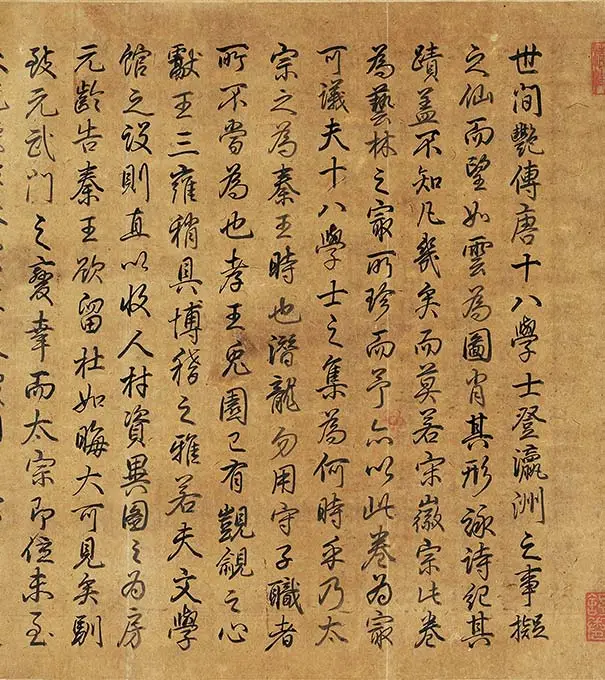 世間艷傳唐十八學士登瀛洲之事擬
之仙而望如雲為圖肖其形詠詩紀其
蹟盖不知凡幾矣而莫若宋徽宗此卷
為藝林之冣所珍而予亦以此卷為冣
可議夫十八學士之集為何時乎乃太
宗之為秦王時也潛龍勿用守子職者
所不當為也孝王兎園已有覬覦之心
獻王三雍稍具博稽之雅若夫文學
館之設則直以收人材資異圖之為房
元齡告秦王欲留杜如晦大可見矣馴
致元武門之變幸而太宗即位未至